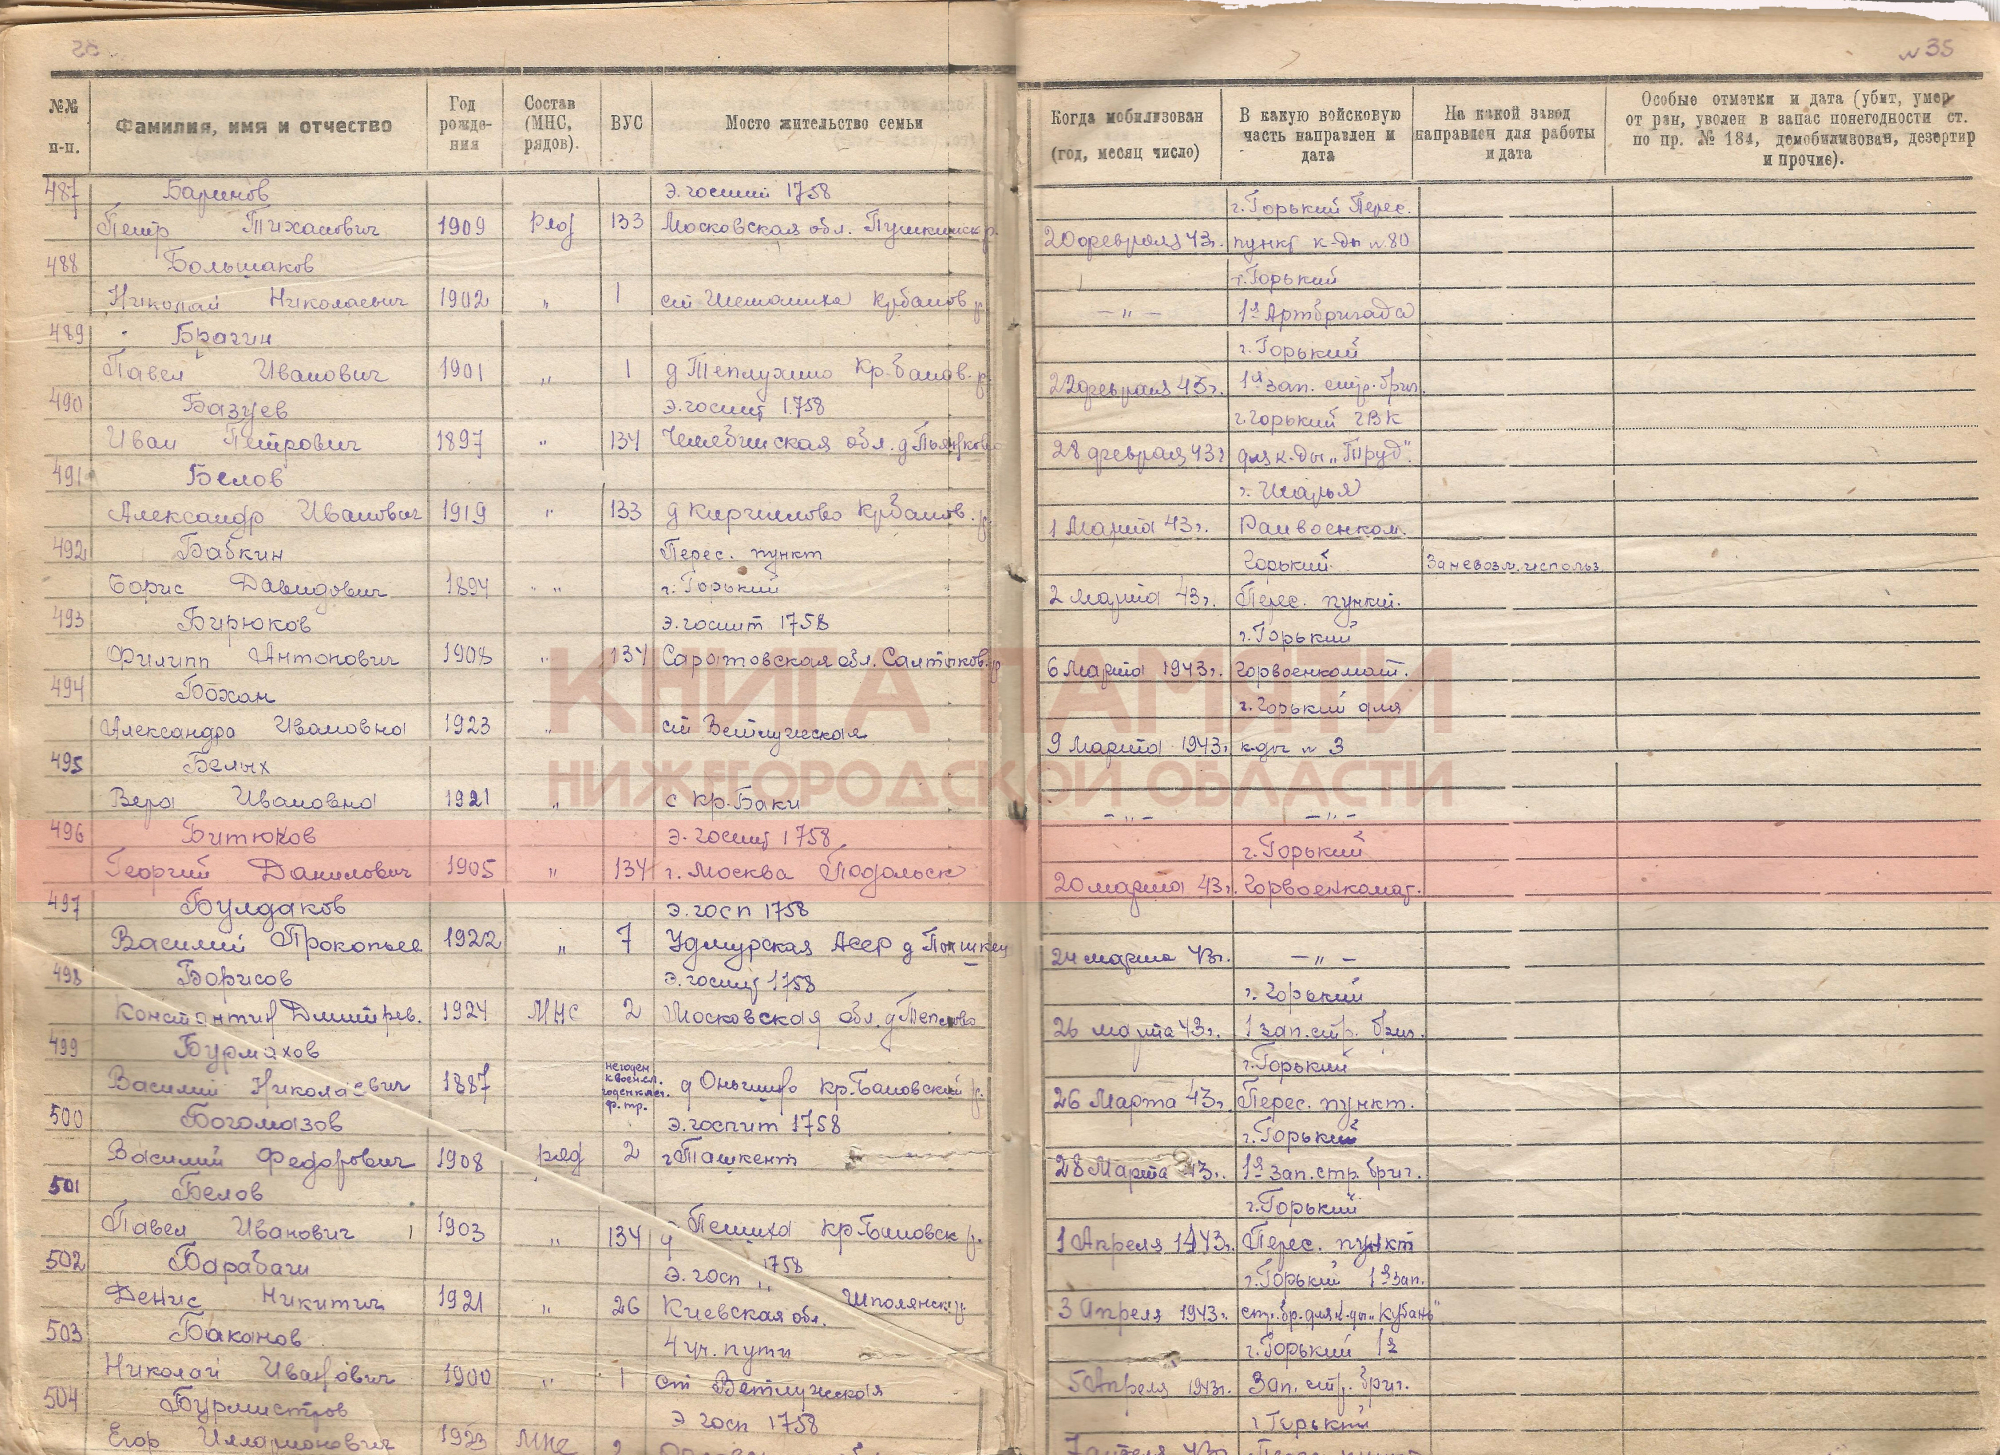 35
№ 35
№№ п-п.
Фамилия, имя и отчество
Год рожде- ния
Состав (МНС, рядов).
ВУС
Мосто жительство семьи
Когда мобилизован (год, месяц число)
В какую войсковую часть направлен и дата
На какой завод направлен для работы и дата
Особые отметки и дата (убит, умер от ран, уволен в запас понегодности ст. по пр. № 184, демобилизован, дезертир и прочие).
487 Баринов э.госпит 1758 г.Горький Перес.
Петр Тихонович 1909 ряд 133 Московская обл. Пушкинск р. 20 февраля 43г. пункт к-ды №80
488 Большаков г.Горький
Николай Николаевич 1902 " 1 ст Шеманиха Кр.баков р. – " – 1я Артбригада
489 Брагин г.Горький
Павел Иванович 1901 " 1 д Теплухино Кр.баков. р. 22 февраля 43г. 1я зап. стр. бриг.
490 Базуев э.госпит 1758 г.Горький ГВК
Иван Петрович 1897 " 134 Челябинская обл. д 28 февраля 43г для к-ды „Труд".
491 Белов г. Шарья
Александр Иванович 1919 " 133 д Кириллово Кр.баков. р. 1 Марта 43г. Раивоенком.
492 Бабкин Перес. пункт Горький Заневозм.использ.
Борис Давидович 1894 " " г.Горький 2 марта 43г. Перес. пункт.
493 Бирюков э.госпит 1758 г.Горький
Филипп Антонович 1908 " 134 Саратовская обл. Салтыков. р 6 Марта 1943г. Горвоенкомат.
494 Бохан г.Горький для
Александра Ивановна 1923 " ст Ветлужская 9 Марта 1943г. к-ды № 3
495 Белых
Вера Ивановна 1921 " с Кр.Баки – " – – " –
КНИГА ПАМЯТИ
НИЖЕГОРОДСКОЙ ОБЛАСТИ
496 Битюков э. госпит 1758 г.Горький
Георгий Данилович 1905 " 134 г. Москва Подольск 20 марта 43г. Горвоенкомат.
497 Булдаков э.госп 1758
Василий Прокопьев 1922 " 7 Удмурская Асср д 24 марта 43г. – " –
498 Борисов э.госпит 1758 г. Горький
Константин Дмитрев. 1924 МНС 2 Московская обл. д 26 марта 43г. 1 зап.стр. бриг.
499 Бурмахов г.Горький
Василий Николаевич 1887 негоден к воен.сл. ф.тр. д кр.Баковский р. 26 Марта 43г. Перес. пункт.
500 Богомазов э.госпит 1758 г.Горький
Василий Федорович 1908 ряд 2 г Ташкент 28 Марта 43г. 1я зап.стр.бриг.
501 Белов г.Горький
Павел Иванович 1903 " 134 д Пешиха кр.Баковск р. 1 Апреля 1943г. Перес. пункт
502 Барабаш э.госп 1758 г.Горький 1я зап.
Денис Никитич 1921 " 26 Киевская обл. Шполянск.р. 3 Апреля 1943г. стр.бр.для к-ды „Кубань"
503 Баканов 4 уч. пути г.Горький 1я
Николай Иванович 1900 " 1 ст Ветлужская 5 Апреля 1943г. Зап. стр. бриг.
504 Бурмистров э госп 1758 г Горький
Егор Илларионович 1923 МНС 2